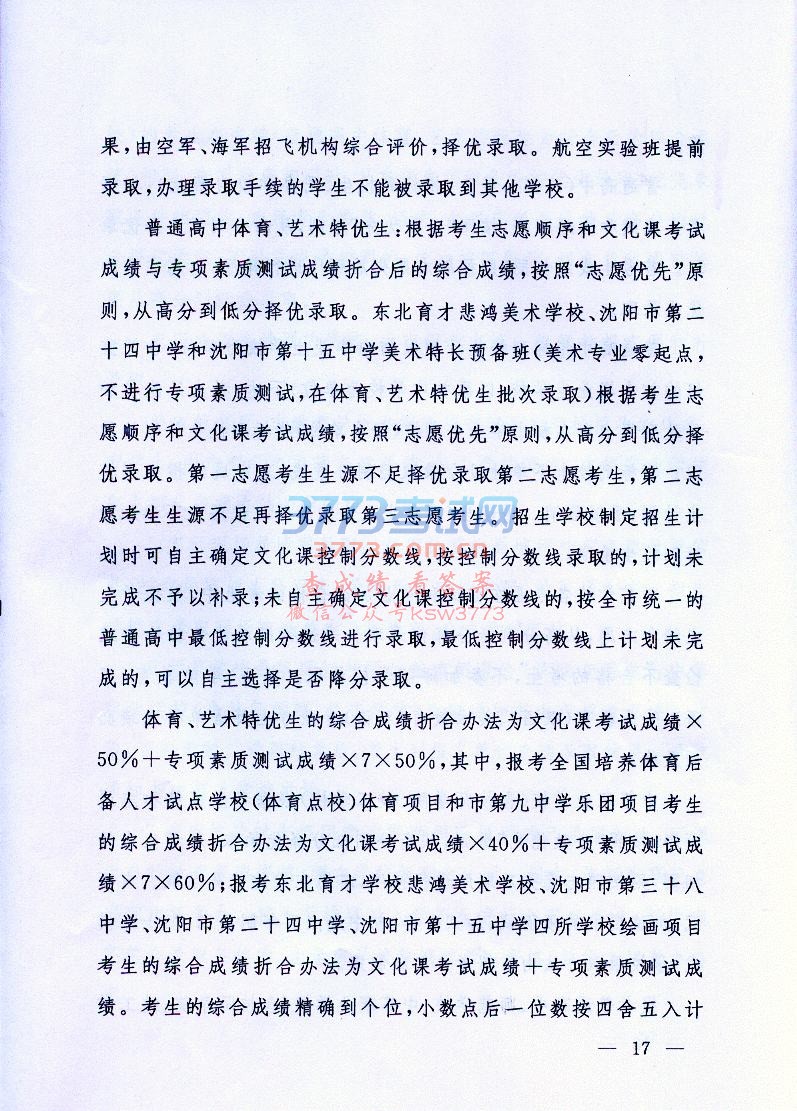 果,由空军、海军招飞机构综合评价,择优录取。航空实验班提前
录取,办理录取手续的学生不能被录取到其他学校。
普通高中体育、艺术特优生:根据考生志愿顺序和文化课考试
成绩与专项素质测试成绩折合后的综合成绩,按照“志愿优先”原
则,从高分到低分择优录取。东北育才悲鸿美术学校、沈阳市第二
十四中学和沈阳市第十五中学美术特长预备班(美术专业零起点,
不进行专项素质测试,在体育、艺术特优生批次录取)根据考生志
愿顺序和文化课考试成绩,按照“志愿优先”原则,从高分到低分择
优录取。第一志愿考生生源不足择优录取第二志愿考生,第二志
愿考生生源不足再择优录取第三志愿考生。招生学校制定招生计
3773考试网
划时可自主确定文化课控制分数线,按控制分数线录取的,计划未
www.3773.com.cn
查成绩 看答案
完成不予以补录;未自主确定文化课控制分数线的,按全市统一的
微信公众号ksw3773
普通高中最低控制分数线进行录取,最低控制分数线上计划未完
成的,可以自主选择是否降分录取。
体育、艺术特优生的综合成绩折合办法为文化课考试成绩×
50%+专项素质测试成绩×7×50%,其中,报考全国培养体育后
备人才试点学校(体育点校)体育项目和市第九中学乐团项目考生
的综合成绩折合办法为文化课考试成绩×40%+专项素质测试成
绩×7×60%;报考东北育才学校悲鸿美术学校、沈阳市第三十八
中学、沈阳市第二十四中学、沈阳市第十五中学四所学校绘画项目
考生的综合成绩折合办法为文化课考试成绩+专项素质测试成
绩。考生的综合成绩精确到个位,小数点后一位数按四舍五入计
— 17 —